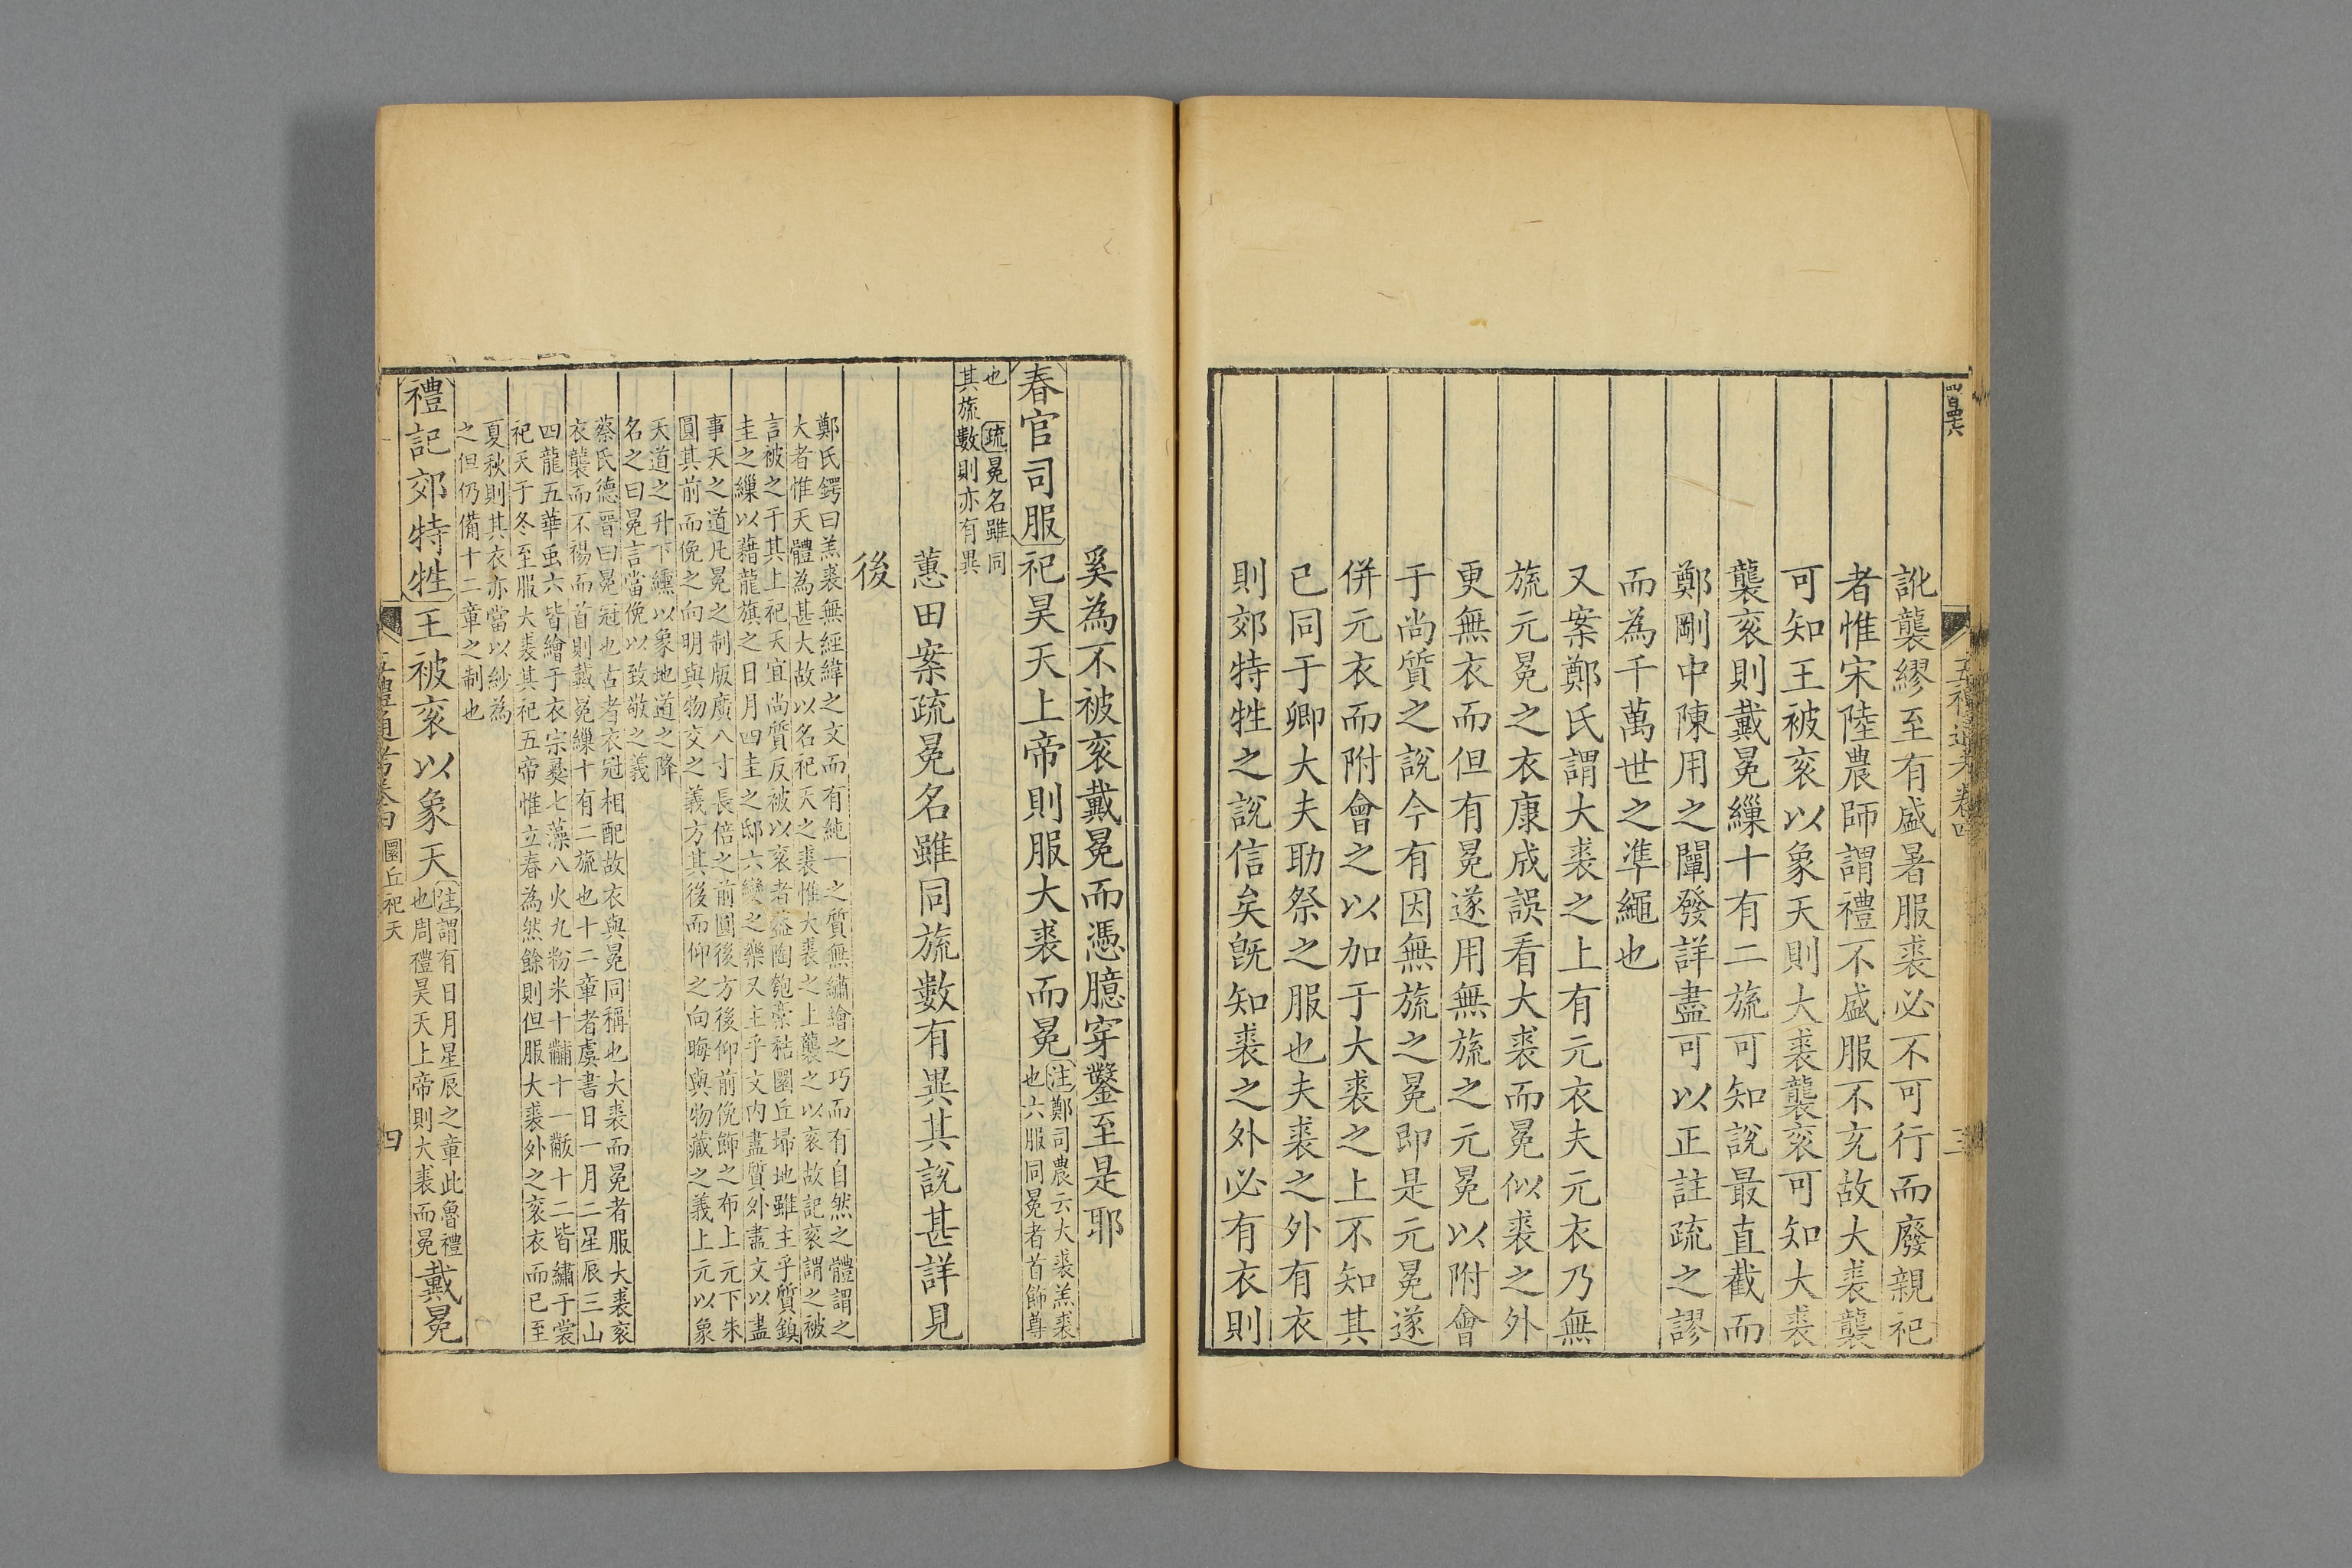 訛襲繆至有盛暑服裘必不可行而廢親祀
者惟宋陸農師謂禮不盛服不充故大裘襲
可知王被袞以象天則大裘襲袞可知大裘
襲袞則戴冕繅十有二旒可知說最直截而
鄭剛中陳用之闡發詳盡可以正註疏之謬
而為千萬世之準繩也
又案鄭氏謂大裘之上有元衣夫元衣乃無
旒元冕之衣康成誤看大裘而冕似裘之外
更無衣而但有冕遂用無旒之元冕以附會
于尚質之說今有因無旒之冕即是元冕遂
併元衣而附會之以加于大裘之上不知其
已同于卿大夫助祭之服也夫裘之外有衣
則郊特牲之說信矣旣知裘之外必有衣則
奚為不被袞戴冕而憑臆穿鑿至是耶
春官司服祀昊天上帝則服大裘而冕
注鄭司農云大裘羔裘
也六服同冕者首飾尊
也 疏冕名雖同
其旒數則亦有異
蕙田案疏冕名雖同旒數有異其說甚詳見
後
鄭氏鍔曰羔裘無經緯之文而有純一之質無繡繪之巧而有自然之體謂之
大者惟天體為甚大故以名祀天之裘惟大裘之上襲之以袞故記袞謂之被
言被之于其上祀天宜尚質反被以袞者益陶匏槀秸圜丘埽地雖主乎質鎮
圭之繅以藉龍旗之日月四圭之邸六變之樂又主乎文內盡質外盡文以盡
事天之道凡冕之制版廣八寸長倍之前圓後方後仰前俛飾之布上元下朱
圓其前而俛之向明與物交之義方其後而仰之向晦與物藏之義上元以象
天道之升下纁以象地道之降
名之曰冕言當俛以致敬之義
蔡氏德晉曰冕冠也古者衣冠相配故衣與冕同稱也大裘而冕者服大裘袞
衣襲而不裼而首則戴冕繅十有二旒也十二章者虞書日一月二星辰三山
四龍五華虫六皆繪于衣宗彝七藻八火九粉米十黼十一黻十二皆繡于裳
祀天于冬至服大裘其祀五帝惟立春為然餘則但服大裘外之袞衣而已至
夏秋則其衣亦當以紗為
之但仍備十二章之制也
禮記郊特牲王被袞以象天
注謂有日月星辰之章此魯禮
也周禮昊天上帝則大裘而冕
戴冕
五禮通考卷四 圜丘祀天
四